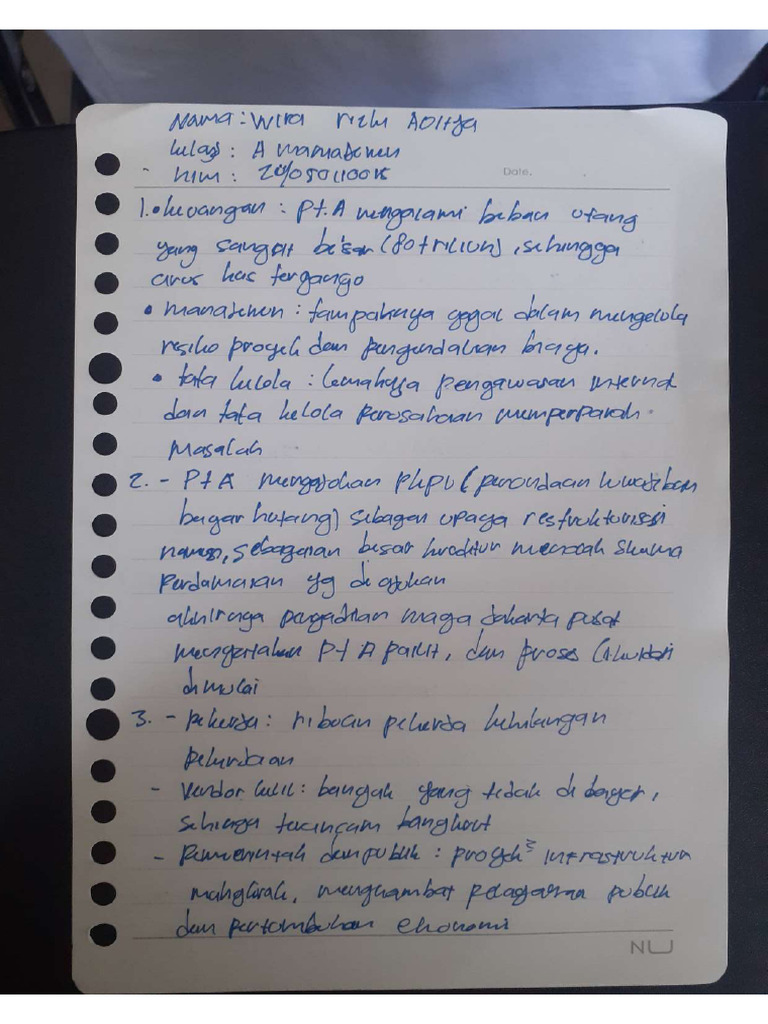 Nama : Wira Rizki Aditya
kelas : A manajemen
NIM :
Date.
1. • keuangan : Pt. A mengalami beban utang
yang sangat besar (80 triliun), sehingga
arus kas terganggo
• manajemen : tampaknya gagal dalam mengelola
resiko proyek dan pengendalian biaya.
• tata kelola : lemahnya pengawasan internal
dan tata kelola perusahaan memperparah
masalah
2. - Pt A mengajukan PKPU (penundaan kewajiban
bayar hutang) sebagai upaya restrukturisasi
namun, sebagian besar kreditur menolak skema
perdamaian yg di ajukan
akhirnya pengadilan niaga Jakarta pusat
menyatakan Pt A pailit, dan proses likuidasi
dimulai
3. - pekerja : ribuan pekerja kehilangan
pekerjaan
- Vendor kecil : banyak yang tidak di bayar,
sehinga terancam bangkrut
- Pemerintah dan publik : proyek² infrastruktur
mangkrak, menghambat pelayanan publik
dan pertumbuhan ekonomi
NU